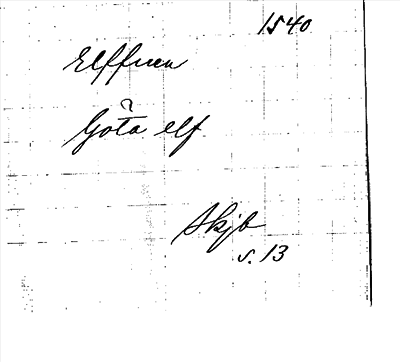 1540
Elffuen
Göta elf
Skjb
s. 13